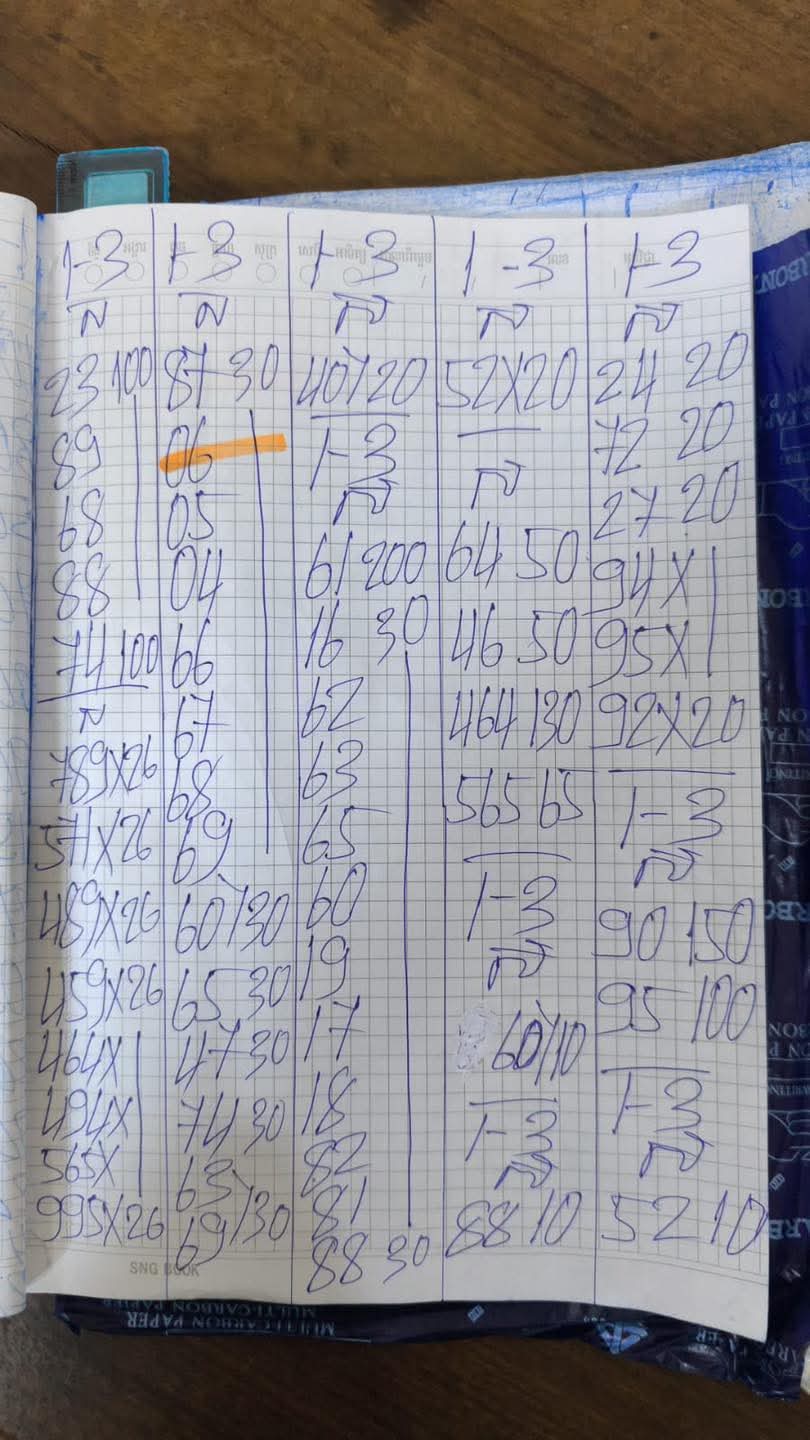 1-3
23 100
89
68
88
74 100
789X26
571X26
489X26
459X26
464X
494X
565X
995X26
1-3
87 30
06
05
04
66
67
68
69
60/30
65 30
47 30
74 30
63
69/30
1-3
40/20
1-3
61 200
16 30
62
63
65
60
19
17
18
82
81
88 30
1-3
52X20
64 50
46 50
464 130
565 65
1-3
60/10
1-3
88 10
1-3
24 20
72 20
27 20
94X
95X
92X20
1-3
90 150
95 100
1-3
52 10
SNG BOOK
MULTI-CARBON PAPER